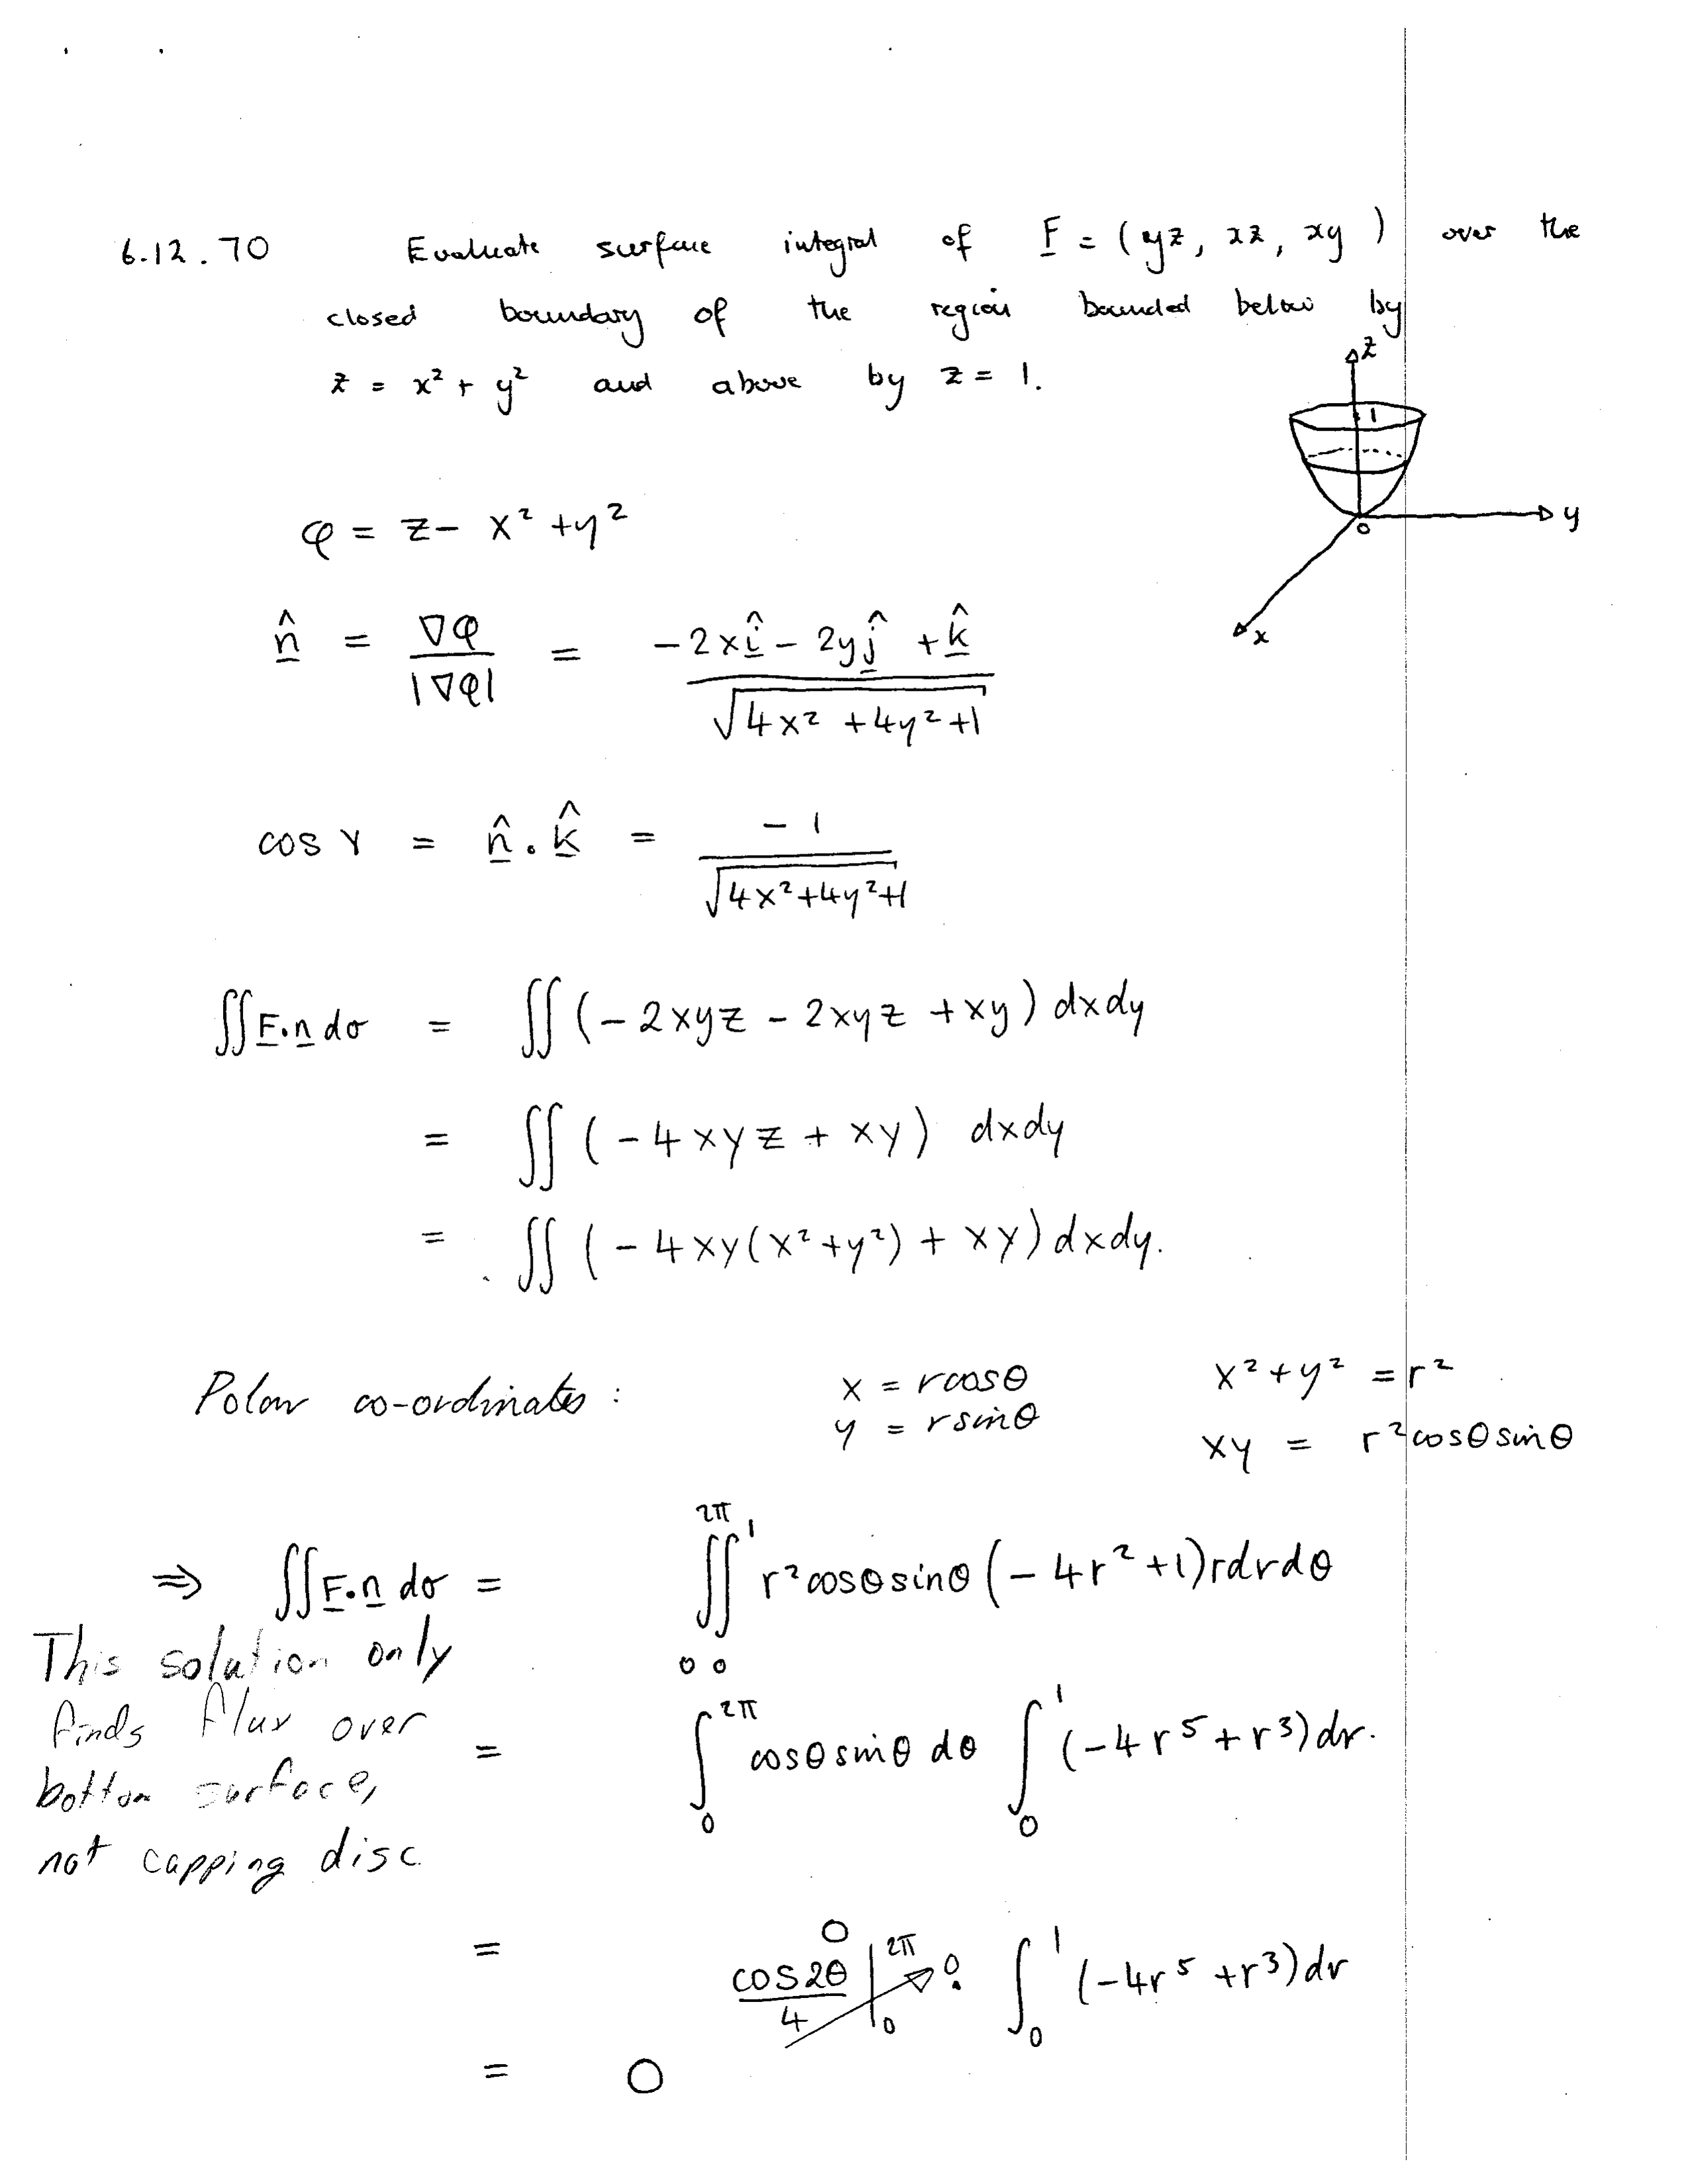 6.12.70 Evaluate surface integral of F = (yz, xz, xy) over the
closed boundary of the region bounded below by
z = x² + y² and above by z = 1.
z
1
y
0
x
φ = z - x² + y²
n̂ = ∇φ / |∇φ| = (-2xî - 2yĵ + k̂) / √(4x² + 4y² + 1)
cos γ = n̂ . k̂ = -1 / √(4x² + 4y² + 1)
∬ F.n dσ = ∬ (-2xyz - 2xyz + xy) dxdy
= ∬ (-4xyz + xy) dxdy
= ∬ (-4xy(x² + y²) + xy) dxdy.
Polar co-ordinates : x = rcosθ x² + y² = r²
y = rsinθ xy = r²cosθsinθ
⇒ ∬ F.n dσ = ∫₀^2π ∫₀^1 r²cosθsinθ (-4r² + 1) r dr dθ
This solution only
finds flux over
bottom surface,
not capping disc
= ∫₀^2π cosθsinθ dθ ∫₀^1 (-4r⁵ + r³) dr.
= cos2θ/4 |₀^2π 0 . ∫₀^1 (-4r⁵ + r³) dr
= 0